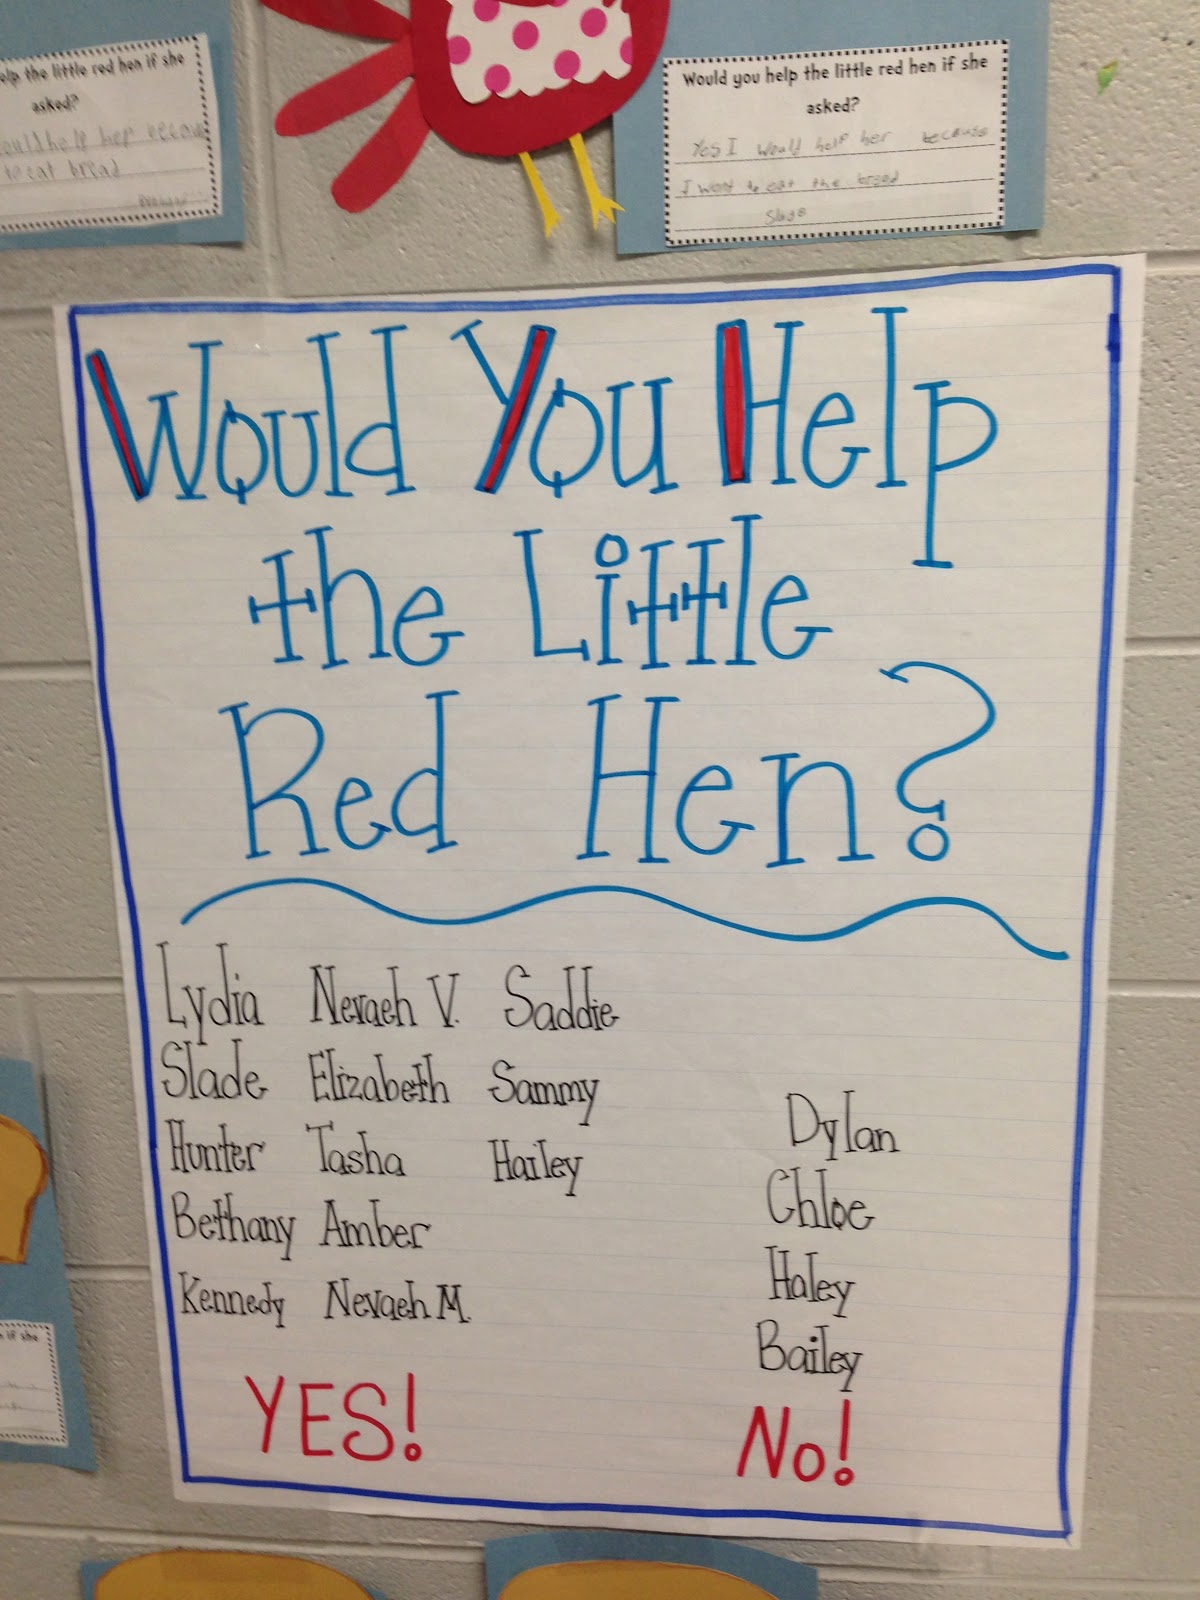 elp the little red hen if she
asked?
ould help her becau
to eat bread
Would you help the little red hen if she
asked?
Yes I would help her because
I wont to eat the bread
Slade
Would You Help
the Little
Red Hen?
Lydia Nevaeh V. Saddie
Slade Elizabeth Sammy
Hunter Tasha Hailey
Bethany Amber
Kennedy Nevaeh M.
Dylan
Chloe
Haley
Bailey
YES! No!
if she